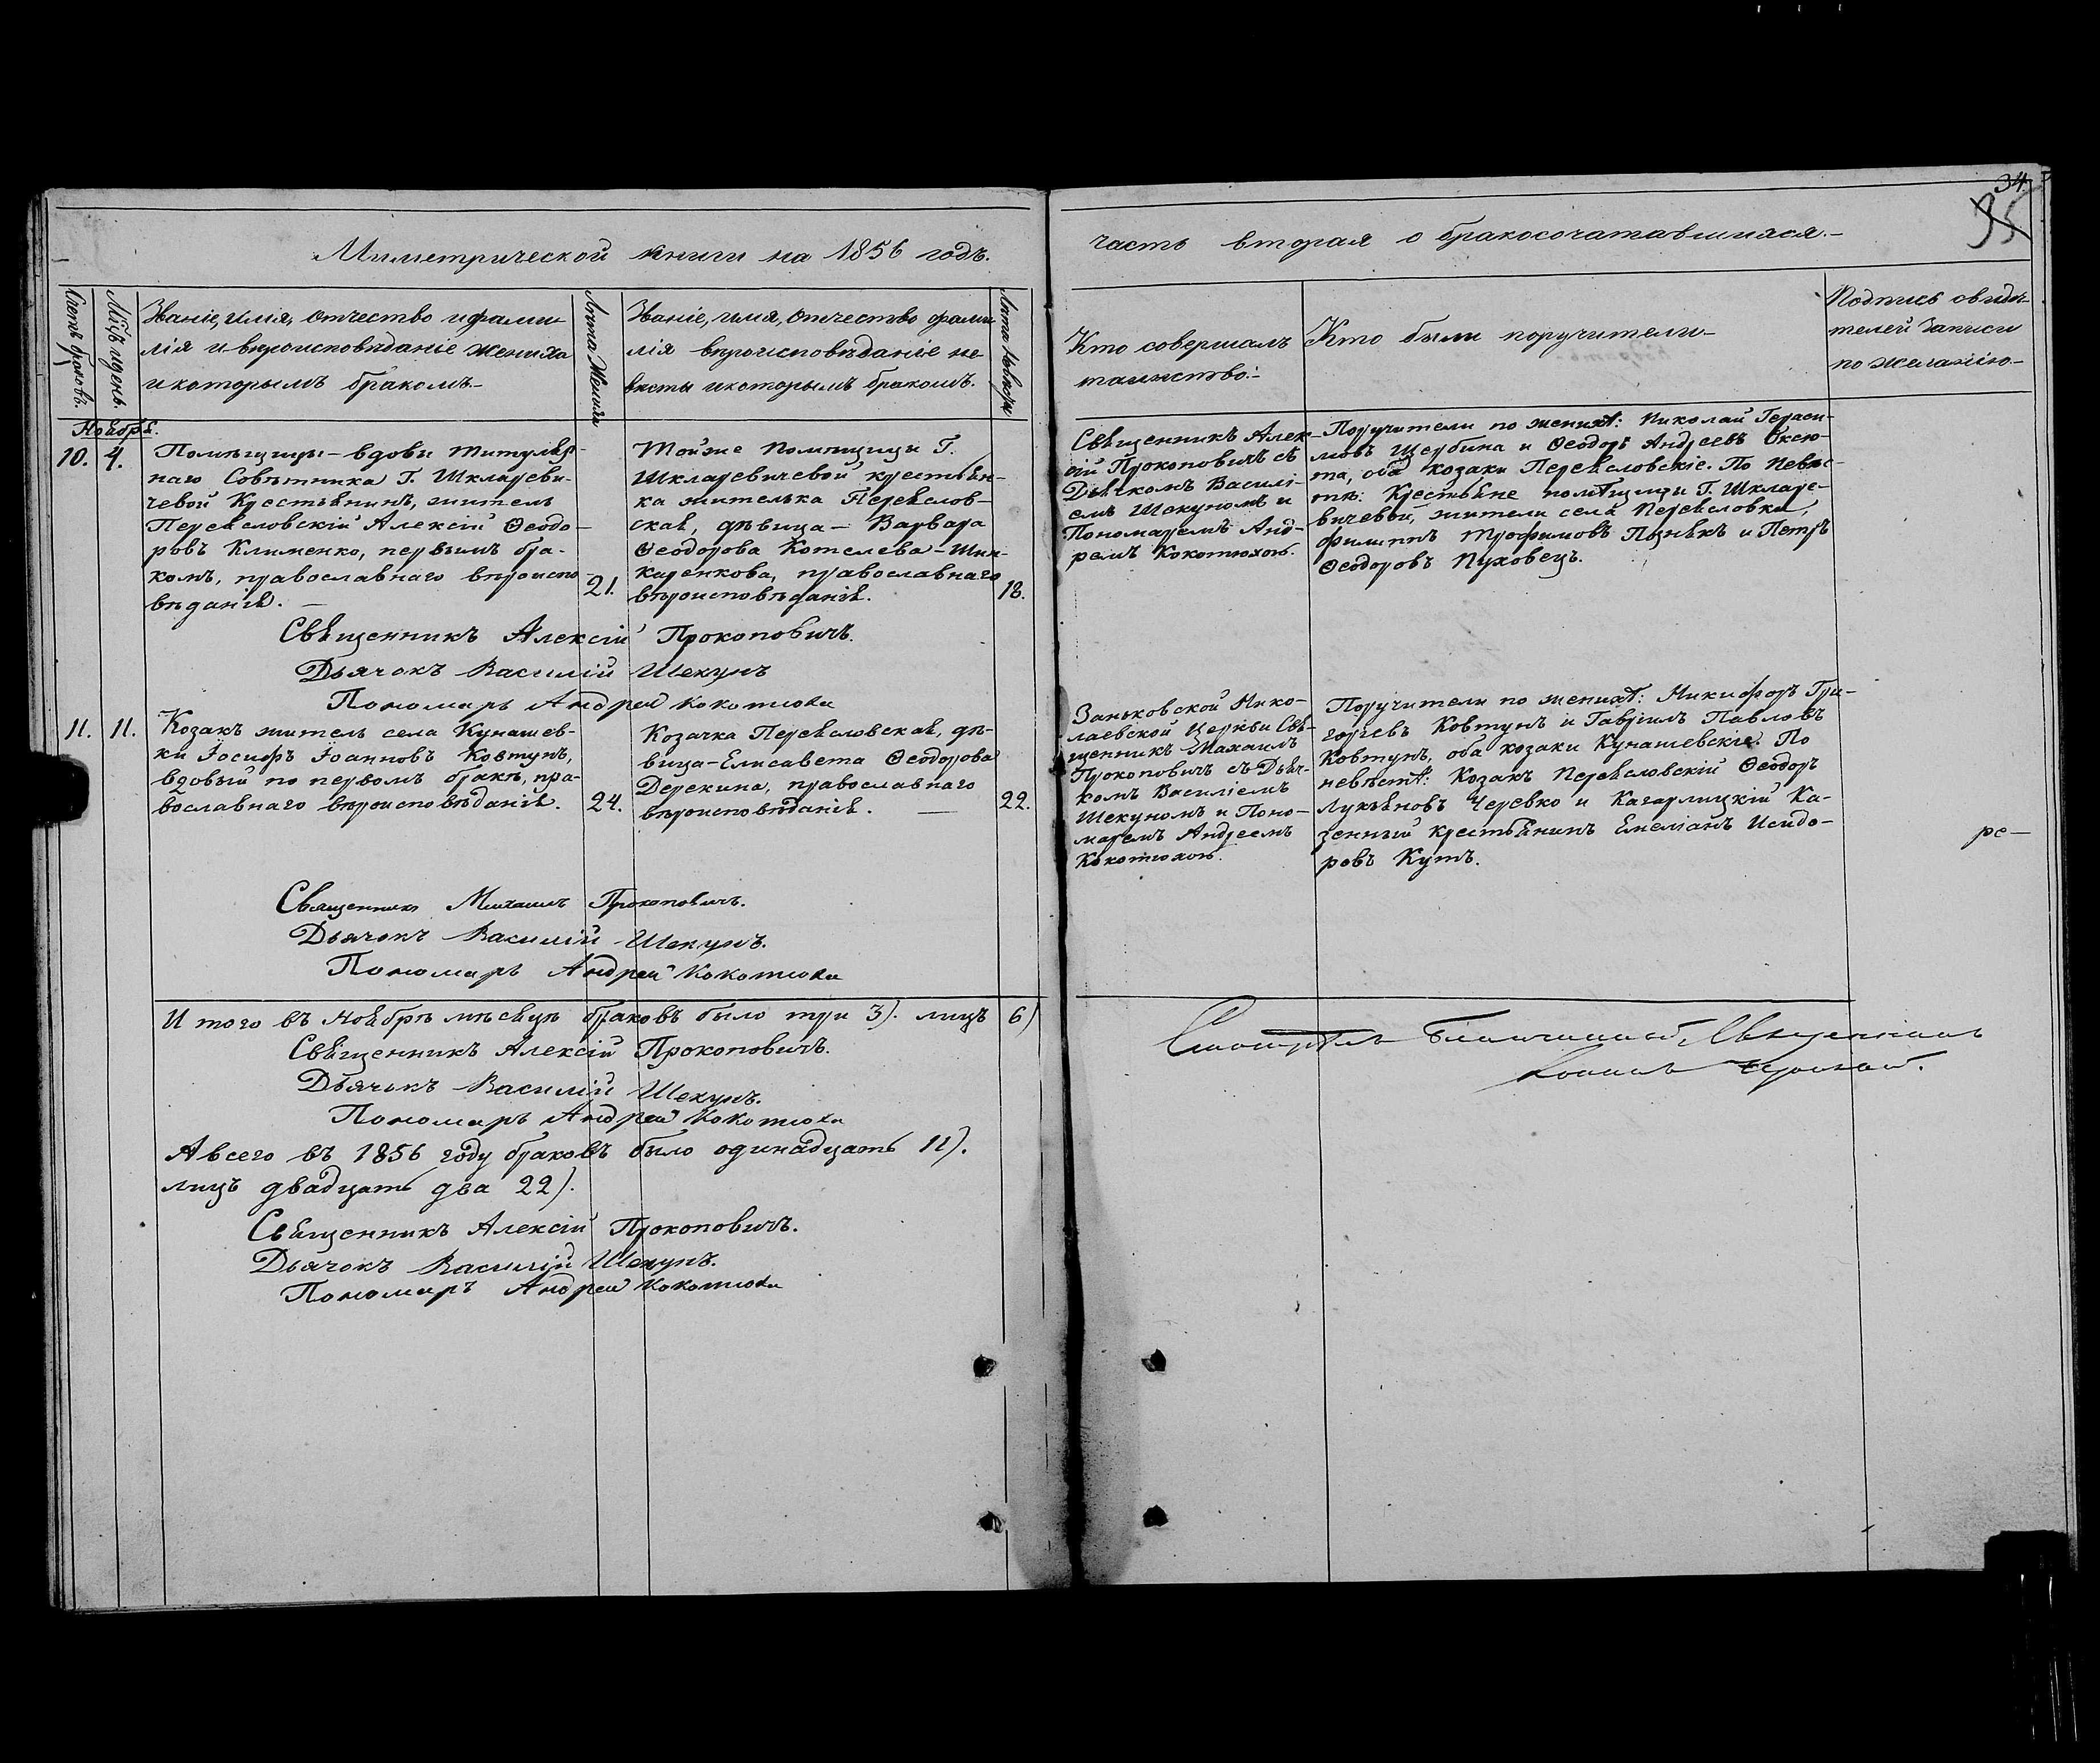 34
35
Миметрической книги на 1856 годъ.
часть вторая о бракосочатавшихся.-
Счетъ браковъ.
Мѣсѣцъ и день.
Званіе, имя, отчество и фами-
лія и вѣроисповѣданіе жениха
и которымъ бракомъ.-
Лѣта Жениха
Званіе, имя, отечество фами-
лія вѣроисповѣданіе не-
вѣсты и которымъ бракомъ.
Лѣта Невѣсты
Кто совершалъ
таинство:-
Кто были поручители-
Подпись свидѣ-
телей записи
по желанію.-
Ноября.
10. 4.
Помѣщицы - вдовы титуляр-
наго Совѣтника Г. Шкляреви-
чевой Крестьянинъ, житель
Переясловскій Алексій Ѳеодо-
ровъ Клименко, первымъ бра-
комъ, православнаго вѣроиспо-
вѣданія. -
21.
Тойже Помѣщицы Г.
Шкляревичевой крестьян-
ка жителька Переяслов-
ская, дѣвица - Варвара
Ѳеодорова Котелева - Шин-
каренкова, православнаго
вѣроисповѣданія.
18.
Священникъ Алек-
сій Прокоповичъ съ
Дьячкомъ Василі-
емъ Шекуномъ и
Пономаремъ Анд-
реемъ Кокотюхою.
Поручители по женихѣ: Николай Гераси-
мовъ Щербина и Ѳеодоръ Андреевъ Оксю-
та, оба козаки Переясловскіе. По Невѣс-
тѣ: Крестьяне помѣщицы Г. Шкляре-
вичевой, жители села Переясловки,
Филиппъ Трофимовъ Познякъ и Петръ
Ѳеодоровъ Пуховецъ.
Священникъ Алексій Прокоповичъ.
Дьячокъ Василій Шекунъ
Пономарь Андрей Кокотюха
11. 11.
Козакъ житель села Кунашев-
ки Іосифъ Іоанновъ Ковтунъ,
вдовый по первомъ бракѣ, пра-
вославнаго вѣроисповѣданія.
24.
Козачка Переясловская, дѣ-
вица - Елисавета Ѳеодорова
Дерекина, православнаго
вѣроисповѣданія. -
22.
Заньковской Нико-
лаевской Церкви Свя-
щенникъ Михаилъ
Прокоповичъ съ Дьяч-
комъ Василіемъ
Шекуномъ и Поно-
маремъ Андреемъ
Кокотюхою.
Поручители по женихѣ: Никифоръ Гри-
горіевъ Ковтунъ и Гавріилъ Павловъ
Ковтунъ, оба козаки Кунашевскіе. По
невѣстѣ: Козакъ Переясловскій Ѳеодоръ
Лукьяновъ Черевко и Кагарлицкій Ка-
зенный крестьянинъ Емеліанъ Исидо-
ровъ Кутъ.
ре-
Священникъ Михаилъ Прокоповичъ.
Дьячокъ Василій Шекунъ.
Пономарь Андрей Кокотюха
И того въ Ноябрѣ мѣсяцѣ браковъ было три 3). лицъ 6)
Священникъ Алексій Прокоповичъ.
Дьячокъ Василій Шекунъ.
Пономарь Андрей Кокотюха
А всего въ 1856 году браковъ было одинадцать 11).
лицъ двадцать два 22).
Священникъ Алексій Прокоповичъ.
Дьячокъ Василій Шекунъ.
Пономарь Андрей Кокотюха
Благочинный, Священникъ